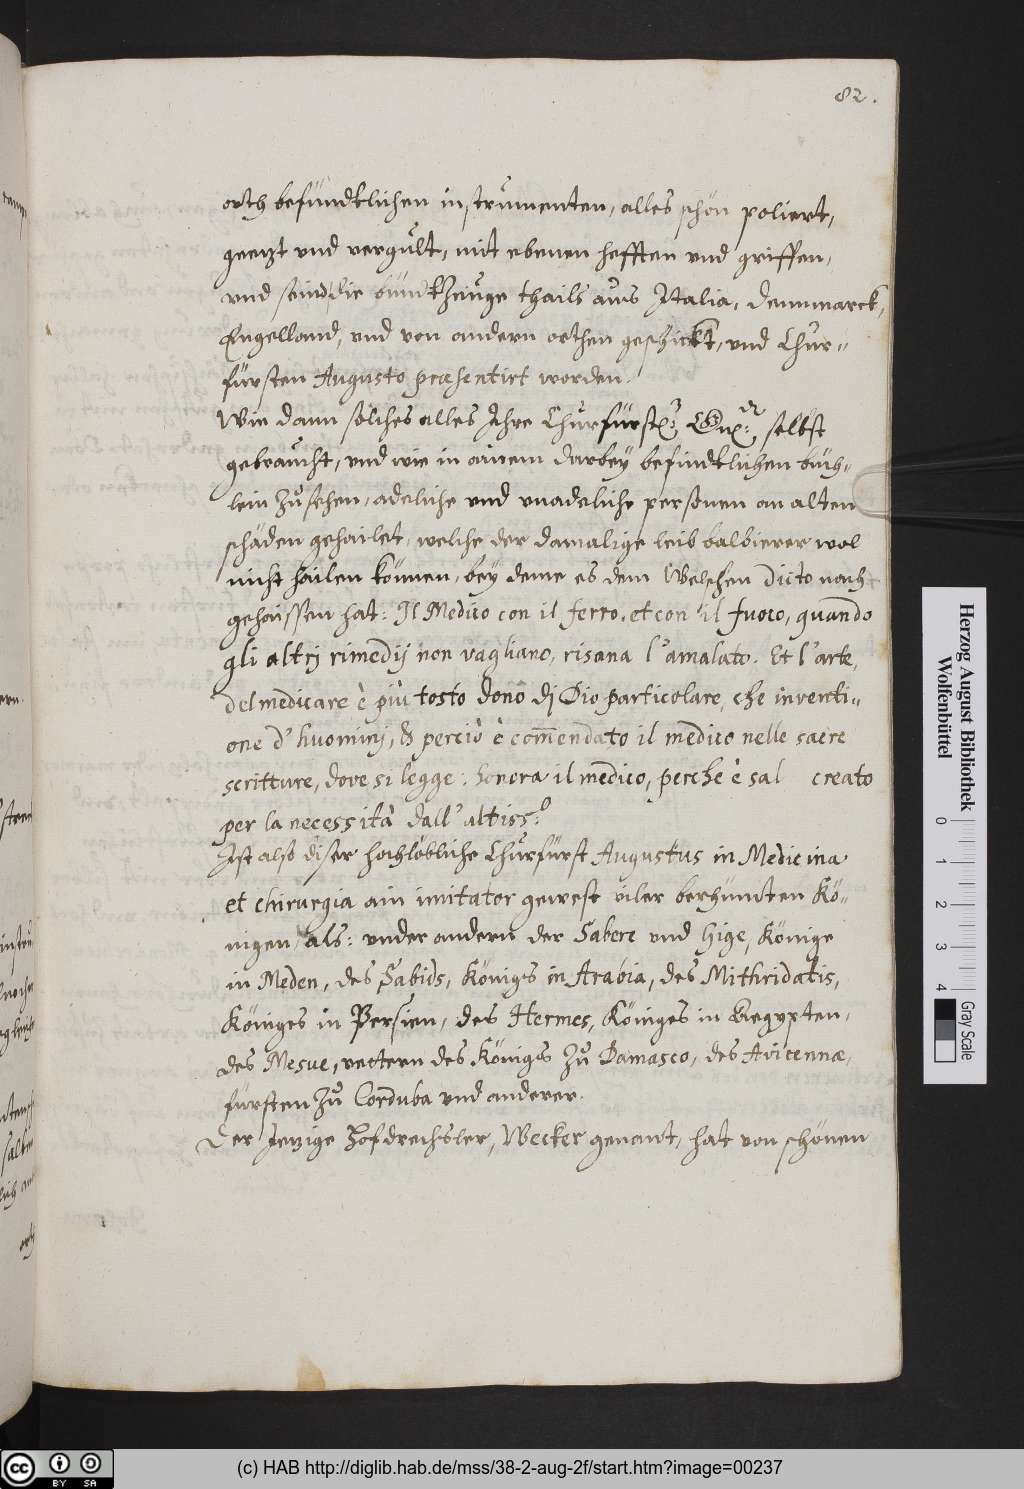 82.
orth befündtlichen instrumenten, alles schön poliert,
geetzt vnd vergult, mit ebenen hefften vnd griffen,
vnd seind die bundtzeuge thails aus Italia, Dennmarck,
Engelland, vnd von andern orthen geschickt, vnd Chur-
fürsten Augusto præsentirt worden.
Wie dann solches alles Ihre Churfürstl: Gn: selbst
gebraucht, vnd wie in ainem darbey befindtlichen büch-
lein zu sehen, adeliche vnd vnadeliche personen an alten
schäden gehailet, welche der damalige leib balbierer wol
nicht hailen können, bey deme es dem Welschen dicto nach
gehaissen hat: Il Medico con il ferro, et con il fuoco, quando
gli altrj rimedij non vagliano, risana l'amalato. Et l'arte,
del medicare è più tosto dono dj Dio particolare, che inventi-
one d' huominj, & perciò è com̄endato il medico nelle sacre
scritture, dove si legge: honora il medico, perche è sal creato
per la necessità dall' altiss:o
Ist also diser hochlöbliche Churfürst Augustus in Medicina
et chirurgia ain imitator gewest viler berhümten Kö-
nigen, als: vnder andern der Sabere vnd Hige, Könige
in Meden, des Sabids, Königs in Arabia, des Mithridatis,
Königes in Persien, des Hermes, Königes in Aegypten,
des Mesue, vettern des Königs zu Damasco, des Avicennæ,
fürsten zu Corduba vnd anderer.
Der Jenige Hofdrechsler, Wecker genant, hat von schönen
Herzog August Bibliothek
Wolfenbüttel
0 1 2 3 4
Gray Scale
cc BY SA
(c) HAB http://diglib.hab.de/mss/38-2-aug-2f/start.htm?image=00237